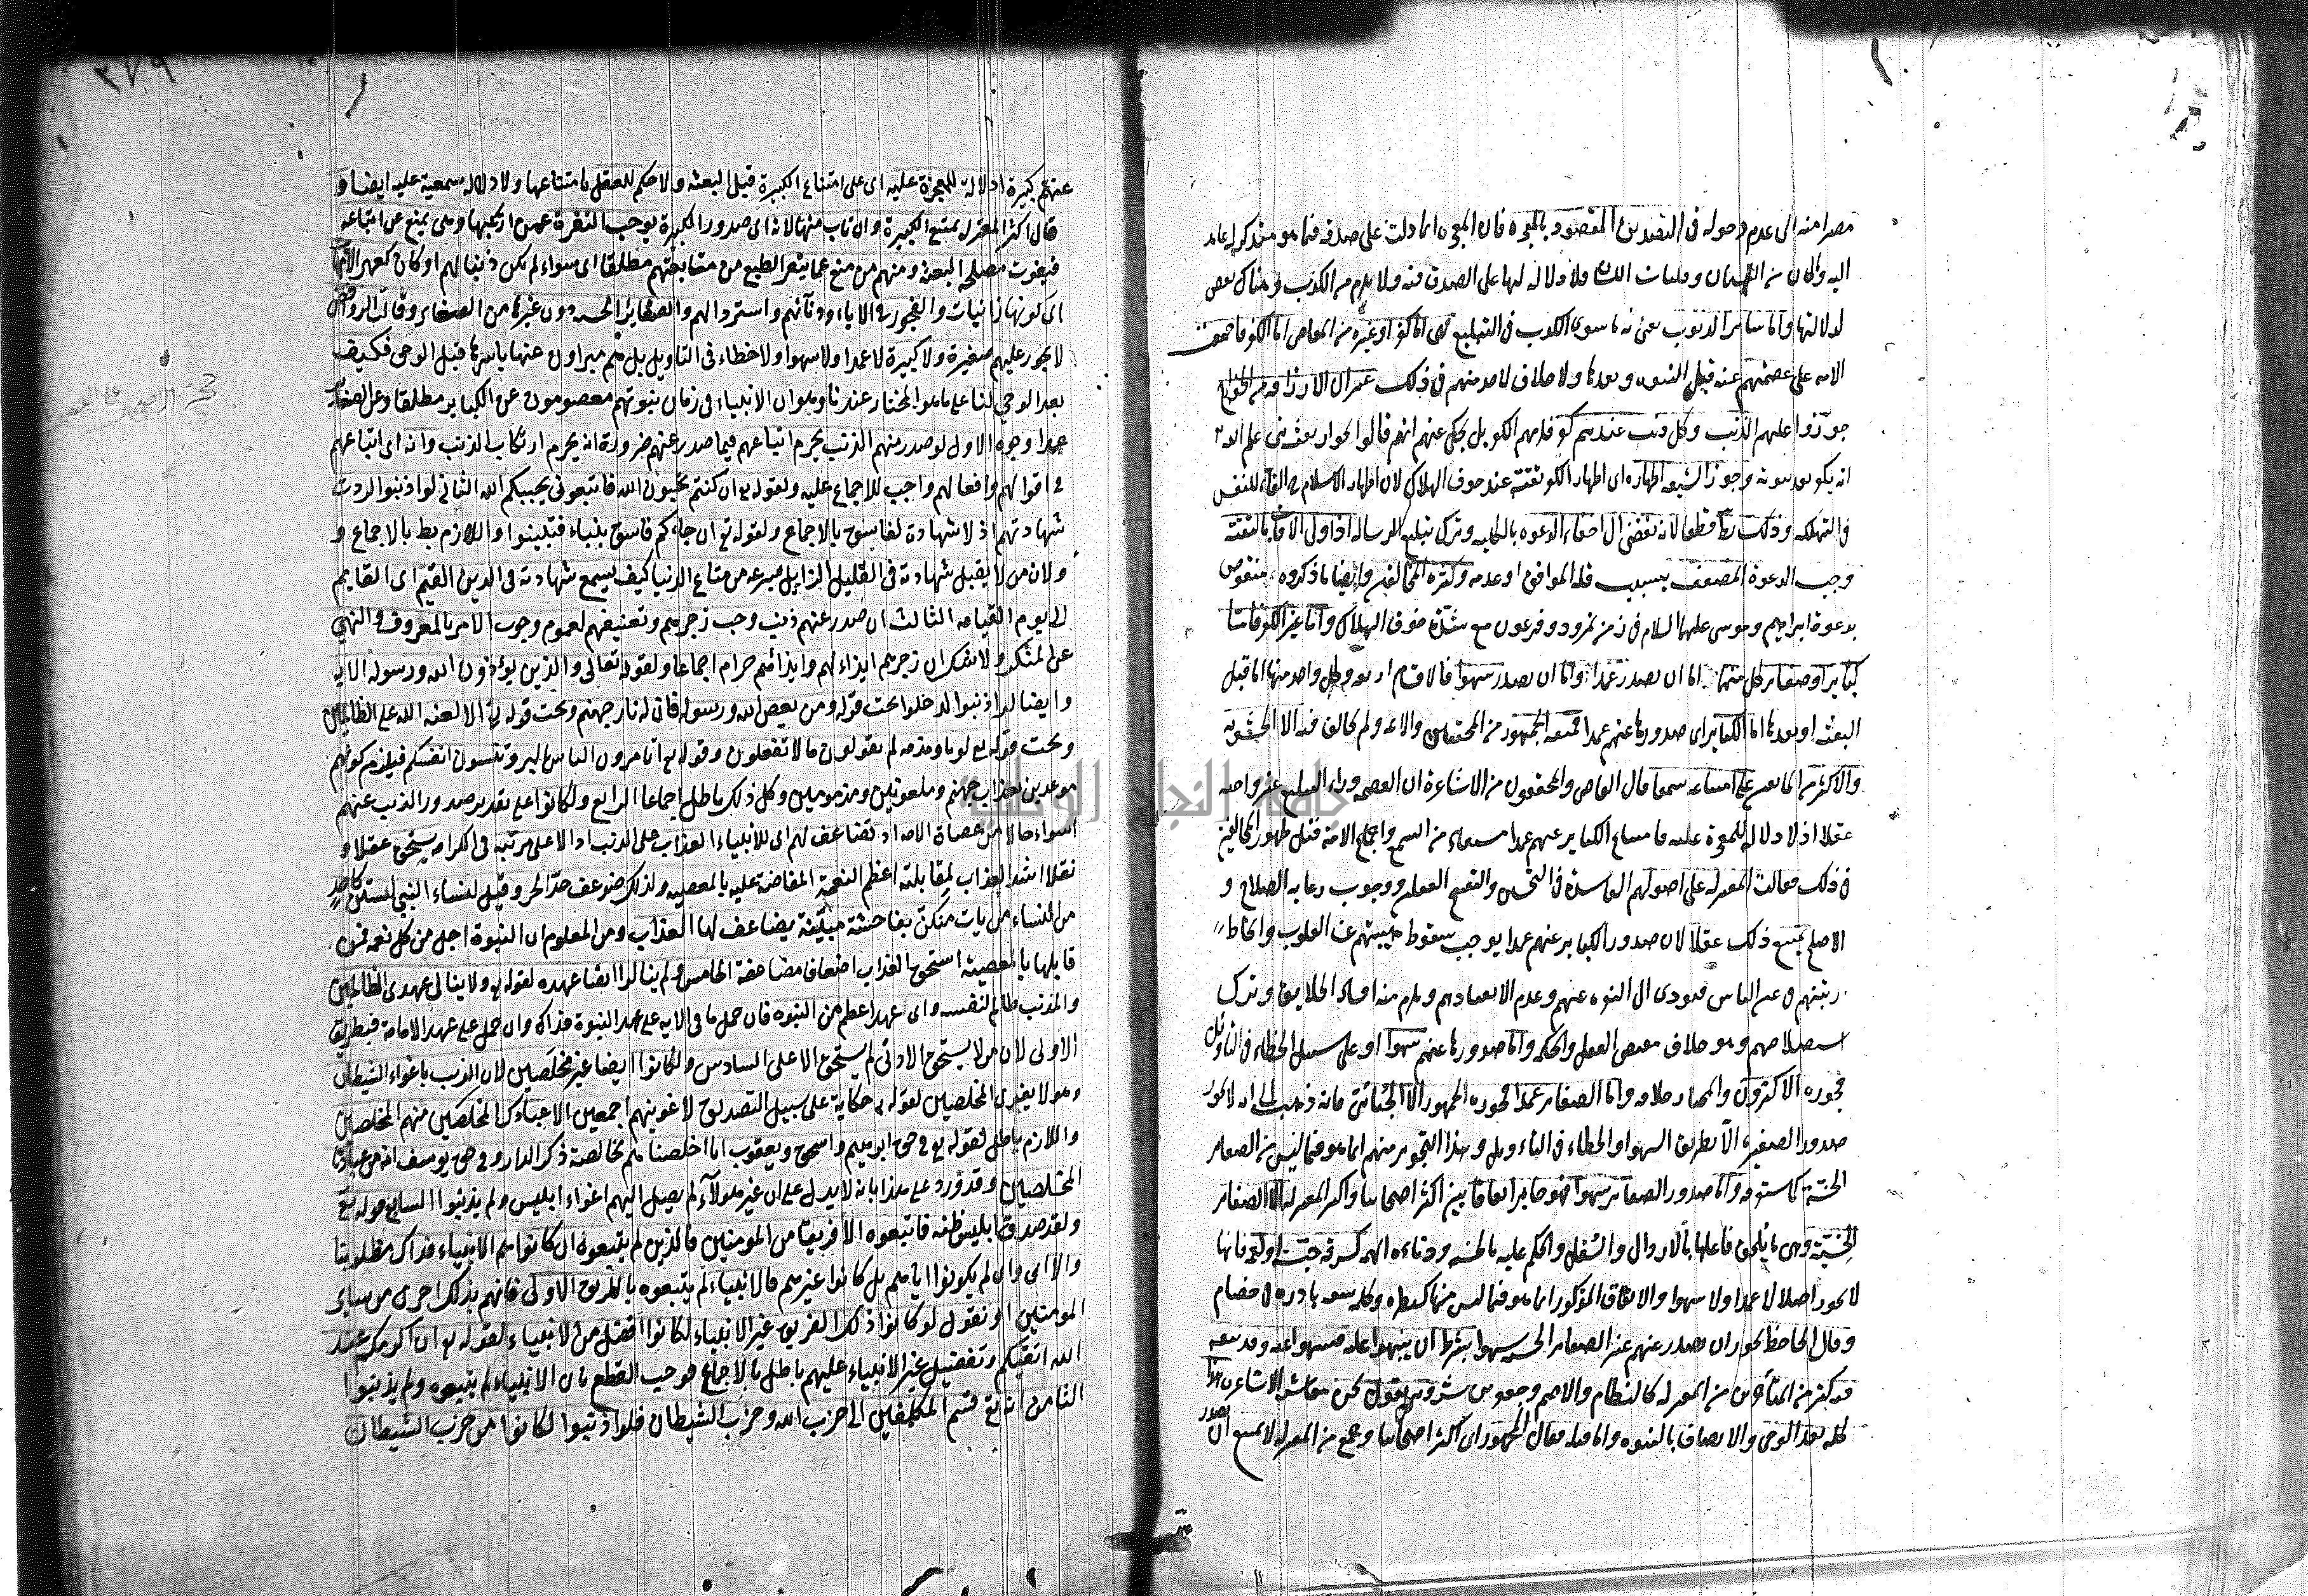 مصيرا منه الى عدم دخوله فى التصديق المقصود بالمعجزة فان المعجزة انما دلت على صدقه فيما هو متذكر له عامد
اليه واما ما كان من النسيان وفلتات اللسان فلا دلالة لها على الصدق فيه ولا يلزم من الكذب هناك نقض
لدلالتها واما سائر الذنوب يعنى به ما سوى الكذب فى التبليغ فهى اما كفر او غيره من المعاصى اما الكفر فاجمعت
الامة على عصمتهم عنه قبل النبوة وبعدها ولا خلاف لاحد منهم فى ذلك غير ان الازارقة من الخوارج
جوزوا عليهم الذنب وكل ذنب عندهم كفر فلزمهم الكفر بل يحكى عنهم انهم قالوا بجواز بعثة نبى علم الله تع
انه يكفر بعد نبوته وجوز الشيعة اظهاره اى اظهار الكفر تقية عند خوف الهلاك لان اظهار الاسلام ح القاء للنفس
فى التهلكة وذلك بط قطعا لانه يفضى الى اخفاء الدعوة بالكلية وترك تبليغ الرسالة اذ اولى الاوقات بالتقية
وجب الدعوة للضعف بسبب قلة الموافق او عدمه وكثرة المخالفين وايضا ما ذكروه منقوض
بدعوة ابراهيم وموسى عليهما السلام فى زمن نمرود وفرعون مع شدة خوف الهلاك واما غير الكفر فاما
كباير او صغاير كل منهما اما ان يصدر عمدا واما ان يصدر سهوا فالاقسام اربعة وكل واحد منها اما قبل
البعثة او بعدها اما الكباير اى صدورها عنهم عمدا فمنعه الجمهور من المحققين والائمة ولم يخالف فيه الا الحشوية
والاكثر من المانعين على امتناعه سمعا قال القاضى والمحققون من الاشاعرة ان العصمة وراء التبليغ غير واجبة
عقلا اذ لا دلالة للمعجزة عليه فامتناع الكباير عنهم عمدا مستفاد من السمع واجماع الامة قبل ظهور المخالفين
فى ذلك وقالت المعتزلة على اصولهم الفاسدة فى التحسين والتقبيح العقليين ووجوب رعاية الصلاح و
الاصلح يمتنع ذلك عقلا لان صدور الكباير عنهم عمدا يوجب سقوط هيبتهم عن القلوب وانحطاط
رتبتهم فى اعين الناس فيودى الى النفرة عنهم وعدم الانقياد لهم ويلزم منه افساد الخلايق وترك
استصلاحهم وهو خلاف مقتضى العقل والحكمة واما صدورها عنهم سهوا او على سبيل الخطاء فى التاويل
فجوزه الاكثرون والمختار خلافه واما الصغاير عمدا فجوزه الجمهور الا الجبائى فانه ذهب الى انه لا يجوز
صدور الصغيرة الا بطريق السهو او الخطاء فى التاويل وهذا التجويز منهم انما هو فيما ليس من الصغاير
الخسية كما ستعرفه واما صدور الصغاير سهوا فهو جايز اتفاقا بين اكثر اصحابنا واكثر المعتزلة الا الصغاير
الخسية وهى ما يلحق فاعلها بالارذال والسفل والحكم عليه بالخسة ودناءة الهمة كسرقة حبة او لقمة فانها
لا يجوز اصلا لا عمدا ولا سهوا والاتفاق المذكور انما هو فيما ليس منها كنظرة وكلمة سفه نادرة فى خصام
وقال الجاحظ يجوز ان يصدر عنهم غير الصغاير الخسية سهوا بشرط ان ينبهوا عليه فينتهوا عنه وقد تبعه
فيه كثير من المتأخرين من المعتزلة كالنظام والاصم وجعفر بن بشر وبه نقول نحن معاشر الاشاعرة هذا
كله بعد الوحى والاتصاف بالنبوة واما قبله فقال الجمهور اى اكثر اصحابنا وجمع من المعتزلة لا يمتنع ان يصدر
٣٧٩
عنهم كبيرة اذ لا دلالة للمعجزة عليه اى على امتناع الكبيرة قبل البعثة ولا حكم للعقل بامتناعها ولا دلالة سمعية عليه ايضا و
قال اكثر المعتزلة يمتنع الكبيرة وان تاب منها لانه اى صدور الكبيرة يوجب النفرة عمن ارتكبها وهى يمنع عن اتباعه
فيفوت مصلحة البعثة ومنهم من منع عما ينفر الطبع من متابعتهم مطلقا اى سواء لم يكن ذنبا لهم او كان كعهر الامهات
اى كونها زانيات والفجور فى الاباء ودنائتهم واسترذالهم والصغاير الخسة دون غيرها من الصغاير وقالت الروافض
لا يجوز عليهم صغيرة ولا كبيرة لا عمدا ولا سهوا ولا خطاء فى التاويل بل هم مبراون عنها باسرها قبل الوحى فكيف
بعد الوحى لنا على ما هو المختار عندنا وهو ان الانبياء فى زمان نبوتهم معصومون عن الكباير مطلقا وعن الصغاير
عمدا وجوه الاول لو صدر منهم الذنب يحرم اتباعهم فيما صدر عنهم ضرورة انه يحرم ارتكاب الذنب وانه اى اتباعهم
فى اقوالهم وافعالهم واجب للاجماع عليه ولقوله تع ان كنتم تحبون الله فاتبعونى يحببكم الله الثانى لو اذنبوا لردت
شهادتهم اذ لا شهادة لفاسق بالاجماع ولقوله تع ان جاءكم فاسق بنباء فتبينوا واللازم بط بالاجماع و
ولان من لا يقبل شهادته فى القليل الزايل بسرعة من متاع الدنيا كيف يسمع شهادته فى الدين القيم اى القايم
الى يوم القيامة الثالث ان صدر عنهم ذنب وجب زجرهم وتعنيفهم لعموم وجوب الامر بالمعروف والنهى
عن المنكر ولا شك ان زجرهم ايذاء لهم وايذائهم حرام اجماعا ولقوله تعالى والذين يؤذون الله ورسوله الاية
وايضا لو اذنبوا لدخلوا تحت قوله ومن يعص الله ورسوله فان له نار جهنم وتحت قوله تع الا لعنة الله على الظالمين
وتحت قوله تع لوما ومذمة لم تقولون ما لا تفعلون وقوله تع اتامرون الناس بالبر وتنسون انفسكم فيلزم كونهم
موعدين بعذاب جهنم وملعونين ومذمومين وكل ذلك باطل اجماعا الرابع ولكانوا على تقدير صدور الذنب عنهم
اسواء حالا من عصاة الامة اذ تضاعف لهم اى للانبياء العذاب على الذنب اذ الاعلى مرتبة فى الكرامة يستحق عقلا و
نقلا اشد العذاب لمقابلته اعظم النعمة المفاضة عليه بالمعصية ولذلك ضوعف حد الحر وقيل لنساء النبى لستن كاحد
من النساء من يات منكن بفاحشة مبينة يضاعف لها العذاب ومن المعلوم ان النبوة اجل من كل نعمة فمن
قابلها بالمعصية استحق العذاب اضعافا مضاعفة الخامس ولم ينالوا ايضا عهده لقوله تع ولا ينال عهدى الظالمين
والمذنب ظالم لنفسه واى عهد اعظم من النبوة فان حمل ما فى الاية على عهد النبوة فذاك وان حمل على عهد الامامة فبطريق
الاولى لان من لا يستحق الادنى لم يستحق الاعلى السادس ولكانوا ايضا غير مخلصين لان الذنب باغواء الشيطان
وهو لا يغوى المخلصين لقوله تع حكاية على سبيل التصديق لاغوينهم اجمعين الا عبادك المخلصين منهم المخلصين
واللازم باطل لقوله تع فى حق ابرهيم واسحق ويعقوب انا اخلصناهم بخالصة ذكرى الدار وفى حق يوسف انه من عبادنا
المخلصين وقد ورد على هذا بانه لا يدل على ان غير هولاء لم يصل اليهم اغواء ابليس ولم يذنبوا السابع قوله تع
ولقد صدق ابليس ظنه فاتبعوه الا فريقا من المومنين فالذين لم يتبعوه ان كانوا هم الانبياء فذاك مطلوبنا
والا اى وان لم يكونوا اياهم بل كانوا غيرهم فالانبياء لم يتبعوه بالطريق الاولى فانهم بذلك احرى من سائر
المومنين او نقول لو كانوا ذلك الفريق غير الانبياء لكانوا افضل من الانبياء لقوله تع ان اكرمكم عند
الله اتقيكم وتفضيل غير الانبياء عليهم باطل بالاجماع فوجب القطع بان الانبياء لم يتبعوه ولم يذنبوا
الثامن انه تع قسم المكلفين الى حزب الله وحزب الشيطان فلو اذنبوا لكانوا من حزب الشيطان
جامعة النجاح الوطنية